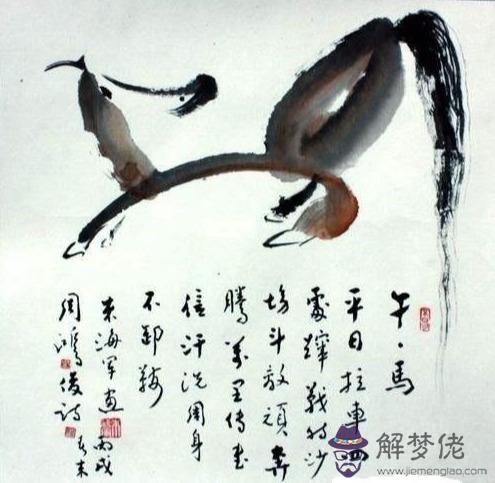 午、馬
平日拉車四
處戰時沙
場斗敵頑奔
騰萬里傳書
信汗洗周身
不卸鞍
海軍画 丙戌
周鴻俊詩 春末
解梦佬
www.jiemenglao.com